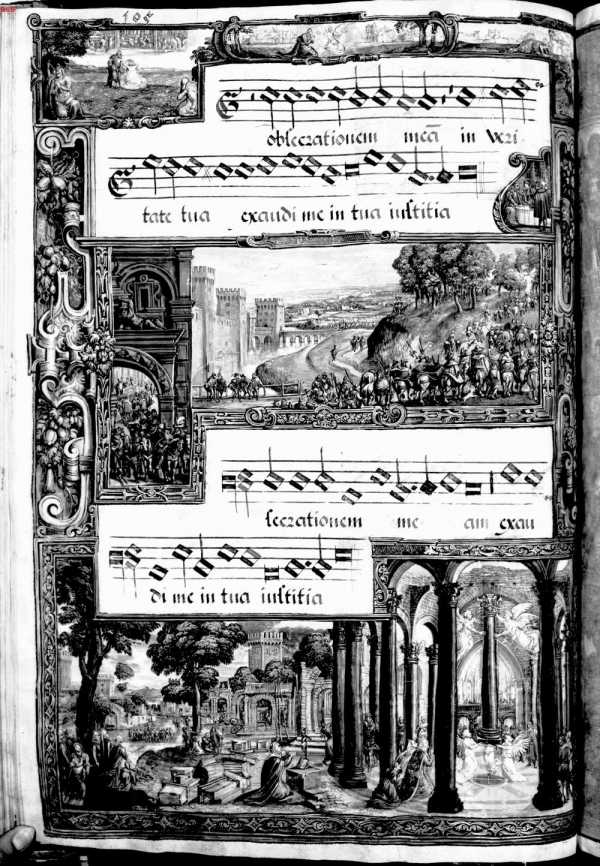 obsecrationem meā in veri-
tate tua exaudi me in tua iustitia
secrationem me am exau
di me in tua iustitia